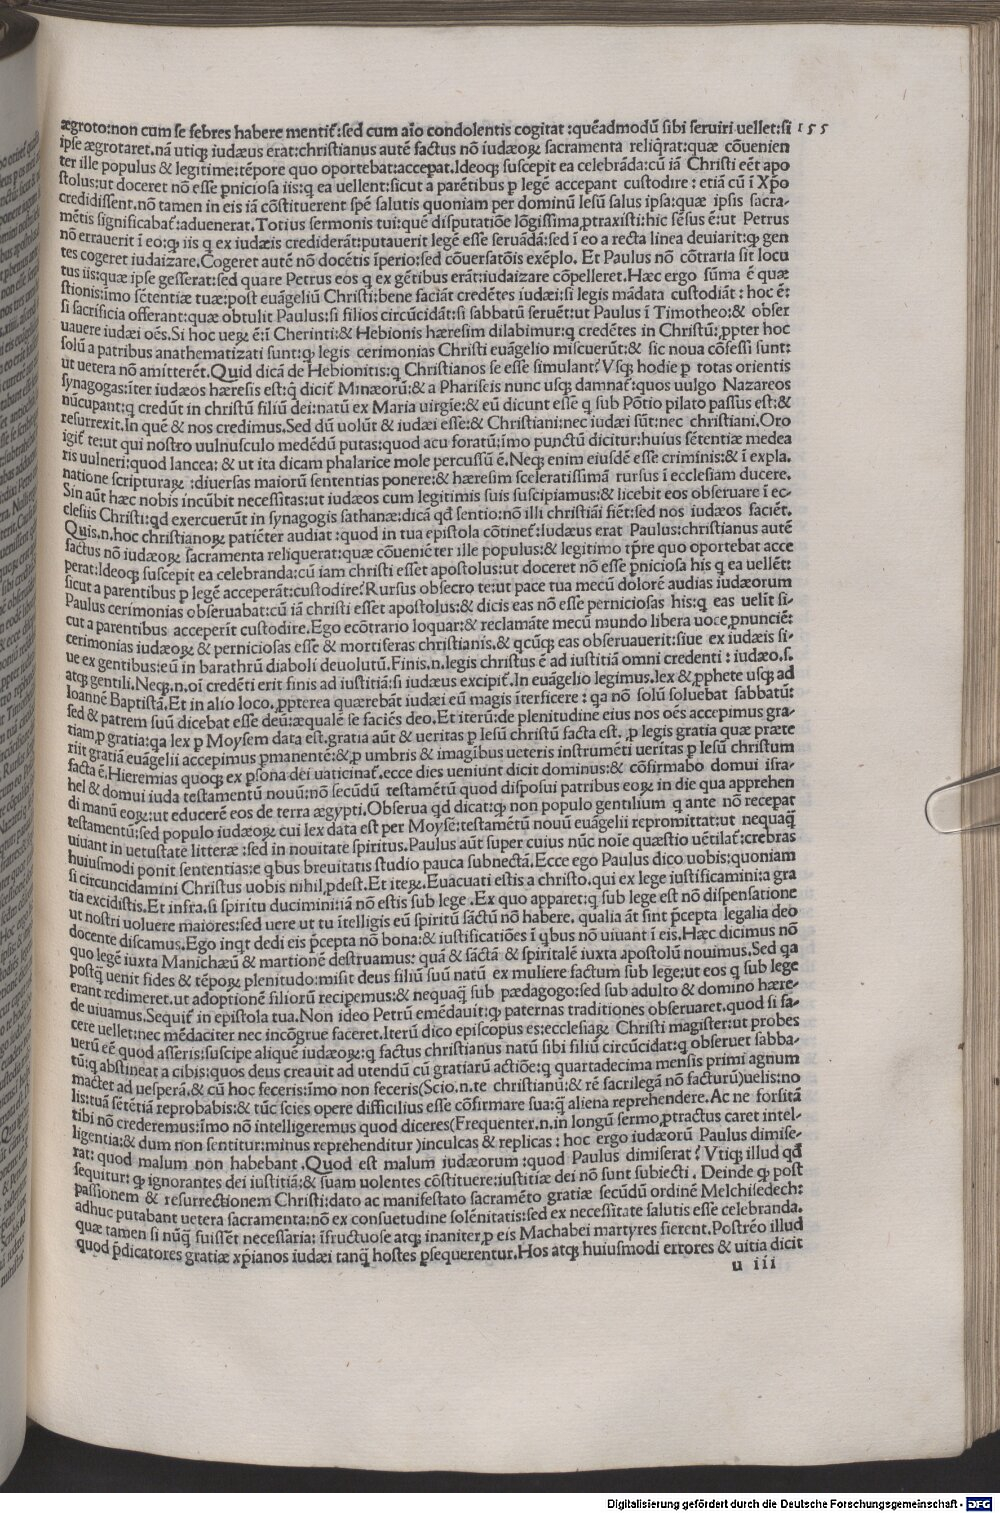 ægroto:non cum se febres habere mentiť:sed cum aĩo condolentis cogitat :quẽadmodũ sibi seruiri uellet:si 155
ipse ægrotaret.nã utiqꝫ iudæus erat:christianus autẽ factus nõ iudæoꝝ sacramenta reliq̃rat:quæ cõuenien
ter ille populus & legitime:tẽpore quo oportebat:accepat.Ideoqꝫ suscepit ea celebrãda:cũ iã Christi eẽt apo
stolus:ut doceret nõ esse pniciosa iis:q ea uellent:sicut a parẽtibus p legẽ accepant custodire : etiã cũ ĩ Xp̃o
credidissent.nõ tamen in eis iã cõstituerent spẽ salutis quoniam per dominũ Iesũ salus ipsa:quæ ipsis sacra-
mẽtis significabať:aduenerat.Totius sermonis tui:quẽ disputatiõe lõgissima,ptraxisti:hic sẽsus ẽ:ut Petrus
nõ errauerit ĩ eo:ꝙ iis q ex iudæis crediderãt:putauerit legẽ esse seruãdã:sed ĩ eo a recta linea deuiarit:ꝙ gen
tes cogeret iudaizare.Cogeret autẽ nõ docẽtis ĩperio:sed cõuersatõis exẽplo. Et Paulus nõ cõtraria sit locu
tus iis:quæ ipse gesserat:sed quare Petrus eos q ex gẽtibus erãt:iudaizare cõpelleret.Hæc ergo sũma ẽ quæ
stionis:ĩmo sẽtentiæ tuæ:post euãgeliũ Christi:bene faciãt credẽtes iudæi:si legis mãdata custodiãt : hoc ẽ:
si sacrificia offerant:quæ obtulit Paulus:si filios circũcidãt:si sabbatũ seruẽt:ut Paulus ĩ Timotheo:& obser
uauere iudæi oẽs.Si hoc ueꝝ ẽ:ĩ Cherinti:& Hebionis hæresim dilabimur:q credẽtes in Christũ:,ppter hoc
solũ a patribus anathematizati sunt:ꝙ legis cerimonias Christi euãgelio miscuerũt:& sic noua cõfessi sunt:
ut uetera nõ amitterẽt.Quid dicã de Hebionitis:q Christianos se esse simulant?Vsqꝫ hodie p totas orientis
synagogas:ĩter iudæos hæresis est:q̃ dicit̃ Minæorũ:& a Phariseis nunc usqꝫ damnať:quos uulgo Nazareos
nũcupant:q credũt in christũ filiũ dei:natũ ex Maria uirgĩe:& eũ dicunt esse q sub Põtio pilato passus est:&
resurrexit.In quẽ & nos credimus.Sed dũ uolũt & iudæi esse:& Christiani:nec iudæi sũt:nec christiani.Oro
igiť te:ut qui nostro uulnusculo medẽdũ putas:quod acu foratũ:ĩmo punctũ dicitur:huius sẽtentiæ medea
ris uulneri:quod lancea: & ut ita dicam phalarice mole percussũ ẽ.Neqꝫ enim eiusdẽ esse criminis:& ĩ expla.
natione scripturaꝝ :diuersas maiorũ sententias ponere:& hæresim sceleratissimã rursus ĩ ecclesiam ducere.
Sin aũt hæc nobis incũbit necessitas:ut iudæos cum legitimis suis suscipiamus:& licebit eos obseruare ĩ ec-
clesiis Christi:qd exercuerũt in synagogis sathanæ:dicã qđ sentio:nõ illi christiãi fiẽt:sed nos iudæos faciẽt.
Quis.n.hoc christianoꝝ patiẽter audiat :quod in tua epistola cõtineť:Iudæus erat Paulus:christianus autẽ
factus nõ iudæoꝝ sacramenta reliquerat:quæ cõueniẽter ille populus:& legitimo tp̃re quo oportebat acce
perat:Ideoqꝫ suscepit ea celebranda:cũ iam christi esset apostolus:ut doceret nõ esse pniciosa his q ea uellẽt:
sicut a parentibus p legẽ acceperãt:custodire?Rursus obsecro te:ut pace tua mecũ dolorẽ audias iudæorum
Paulus cerimonias obseruabat:cũ iã christi esset apostolus:& dicis eas nõ esse perniciosas his:q eas uelĩt si-
cut a parentibus acceperĩt custodire. Ego ecõtrario loquar:& reclamãte mecũ mundo libera uoce,pnunciẽ:
cerimonias iudæoꝝ & perniciosas esse & mortiferas christianis.& qcũqꝫ eas obseruauerit:siue ex iudæis si-
ue ex gentibus:eũ in barathrũ diaboli deuolutũ.Finis.n.legis christus ẽ ad iustitiã omni credenti : iudæo.s.
atqꝫ gentili.Neqꝫ.n.oĩ credẽti erit finis ad iustitiã:si iudæus excipiť.In euãgelio legimus.lex &,pphete usqꝫ ad
Ioannẽ Baptistã.Et in alio loco.,ppterea quærebãt iudæi eũ magis ĩterficere : qa nõ solũ soluebat sabbatũ:
sed & patrem suũ dicebat esse deũ:æqualẽ se faciẽs deo.Et iterũ:de plenitudine eius nos oẽs accepimus gra-
tiam,p gratia:qa lex p Moysem data est.gratia aũt & ueritas p Iesũ christũ facta est. ,p legis gratia quæ præte
riit gratiã euãgelii accepimus pmanentẽ:&,p umbris & imagibus ueteris instrumẽti ueritas p Iesũ christum
facta ẽ.Hieremias quoqꝫ ex psona dei uaticinať.ecce dies ueniunt dicit dominus:& cõfirmabo domui isra-
hel & domui iuda testamentũ nouũ:nõ secũdũ testamẽtũ quod disposui patribus eoꝝ in die qua apprehen
di manũ eoꝝ:ut educerẽ eos de terra ægypti.Obserua qđ dicat:ꝙ non populo gentilium q ante nõ recepat
testamentũ:sed populo iudæoꝝ cui lex data est per Moysẽ:testamẽtũ nouũ euãgelii repromittat:ut nequaq̃
uiuant in uetustate litteræ :sed in nouitate spiritus.Paulus aũt super cuius nũc noĩe quæstio uẽtilať:crebras
huiusmodi ponit sententias:e qbus breuitatis studio pauca subnectã.Ecce ego Paulus dico uobis:quoniam
si circuncidamini Christus uobis nihil,pdest.Et iteꝝ.Euacuati estis a christo.qui ex lege iustificamini:a gra
tia excidistis.Et infra.si spiritu duciminiĩã nõ estis sub lege .Ex quo apparet:q sub lege est nõ dispensatione
ut nostri uoluere maiores:sed uere ut tu ĩtelligis eũ spiritũ sãctũ nõ habere. qualia ãt sint p̃cepta legalia deo
docente discamus.Ego inqt dedi eis p̃cepta nõ bona:& iustificatiões ĩ qbus nõ uiuant ĩ eis.Hæc dicimus nõ
quo legẽ iuxta Manichæũ & martionẽ destruamus: quã & sãctã & spiritalẽ iuxta apostolũ nouimus.Sed qa
postq̃ uenit fides & tẽpoꝝ plenitudo:misit deus filiũ suũ natũ ex muliere factum sub lege:ut eos q sub lege
erant redimeret.ut adoptionẽ filiorũ recipemus:& nequaq̃ sub pædagogo:sed sub adulto & domino hære-
de uiuamus.Sequiť in epistola tua.Non ideo Petrũ emẽdauit:ꝙ paternas traditiones obseruaret.quod si fa-
cere uellet:nec mẽdaciter nec incõgrue faceret.Iterũ dico episcopus es:ecclesiaꝝ Christi magister:ut probes
uerũ eẽ quod asseris:suscipe aliquẽ iudæoꝝ:q factus christianus natũ sibi filiũ circũcidat:q obseruet sabba-
tũ:q abstineat a cibis:quos deus creauit ad utendũ cũ gratiarũ actiõe:q quartadecima mensis primi agnum
mactet ad uesperã.& cũ hoc feceris:ĩmo non feceris(Scio.n.te christianũ:& rẽ sacrilegã nõ facturũ)uelis:no
lis:tuã sẽtẽtiã reprobabis:& tũc scies opere difficilius esse cõfirmare sua:q̃ aliena reprehendere.Ac ne forsitã
tibi nõ crederemus:ĩmo nõ intelligeremus quod diceres(Frequenter.n.in longũ sermo,ptractus caret intel-
ligentia:& dum non sentitur:minus reprehenditur )inculcas & replicas : hoc ergo iudæorũ Paulus dimise-
rat: quod malum non habebant .Quod est malum iudæorum :quod Paulus dimiserat? Vtiqꝫ illud qđ
sequitur: ꝙ ignorantes dei iustitiã:& suam uolentes cõstituere:iustitiæ dei nõ sunt subiecti . Deinde ꝙ post
passionem & resurrectionem Christi:dato ac manifestato sacramẽto gratiæ secũdũ ordinẽ Melchisedech:
adhuc putabant uetera sacramenta:nõ ex consuetudine solẽnitatis:sed ex necessitate salutis esse celebranda.
quæ tamen si nũq̃ fuissẽt necessaria: ĩfructuose atqꝫ inaniter,p eis Machabei martyres fierent.Postrẽo illud
quod p̃dicatores gratiæ xp̃ianos iudæi tanq̃ hostes psequerentur.Hos atqꝫ huiusmodi errores & uitia dicit
u iii
Digitalisierung gefördert durch die Deutsche Forschungsgemeinschaft - DFG